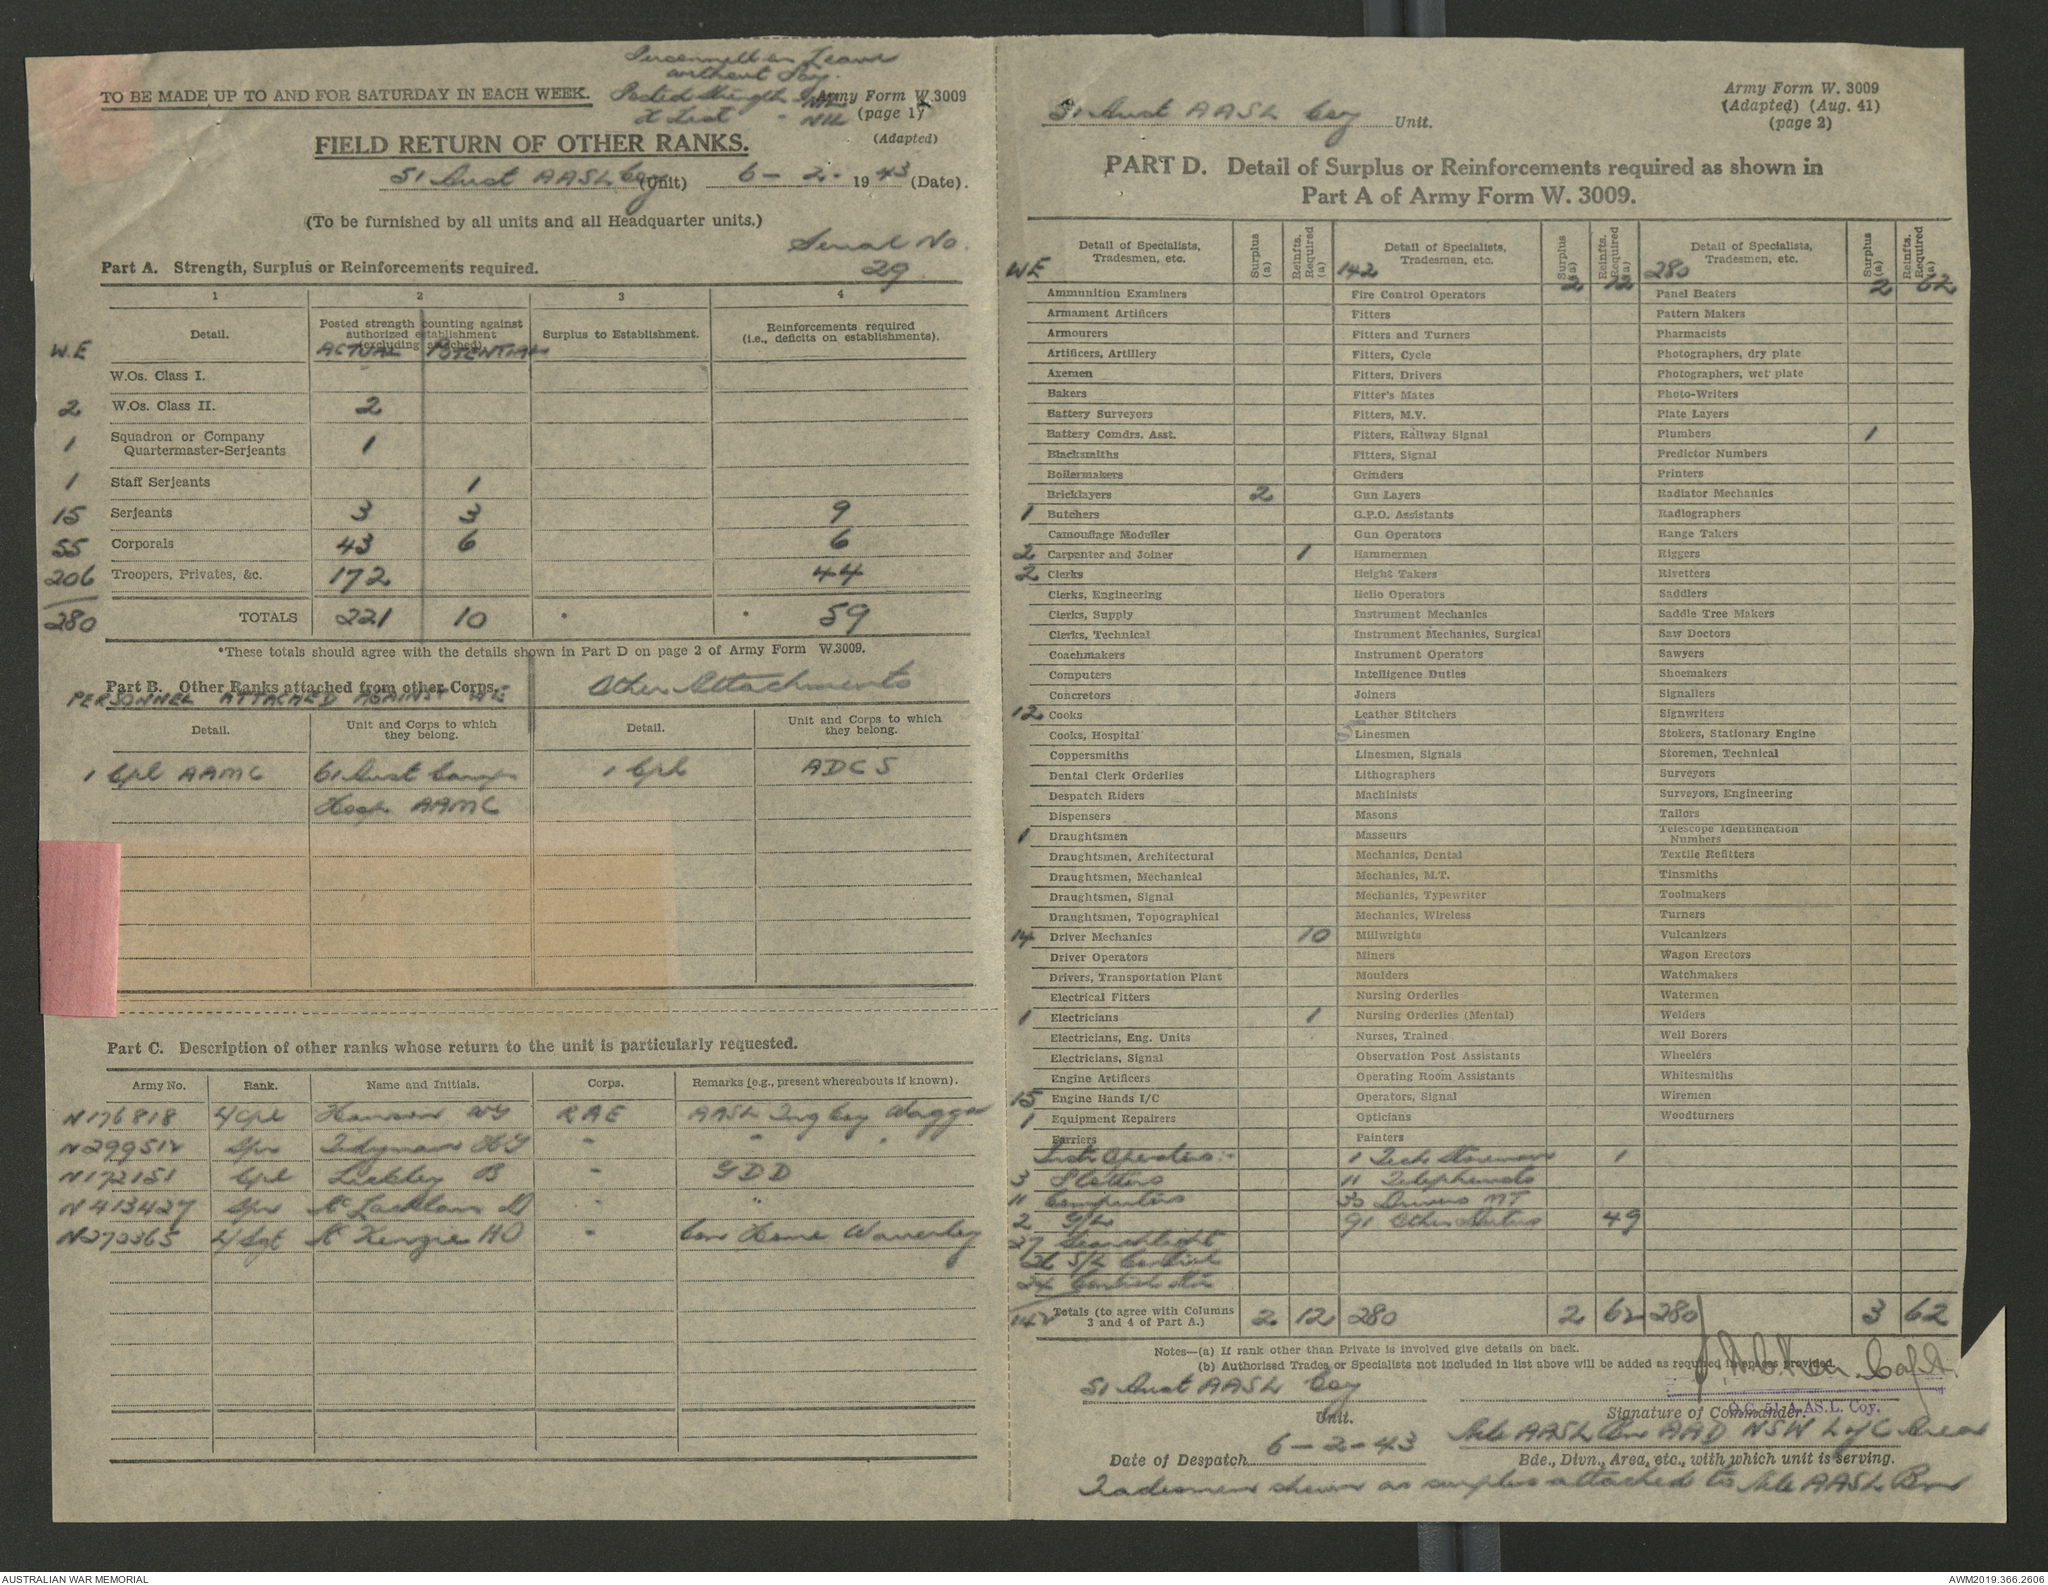 Personnell on Leave
without Pay.
Posted Strength - NIL
X List - NIL
TO BE MADE UP TO AND FOR SATURDAY IN EACH WEEK.
Army Form W.3009
(page 1)
(Adapted)
FIELD RETURN OF OTHER RANKS.
51 Aust AASL Coy (Unit) 6 - 2 - 1943 (Date).
(To be furnished by all units and all Headquarter units.)
Serial No.
29
Part A. Strength, Surplus or Reinforcements required.
1 2 3 4
Detail. Posted strength counting against authorized establishment (excluding attached). Surplus to Establishment. Reinforcements required (i.e., deficits on establishments).
W.E ACTUAL POTENTIAL
W.Os. Class I.
2 W.Os. Class II. 2
1 Squadron or Company Quartermaster-Serjeants 1
1 Staff Serjeants 1
15 Serjeants 3 3 9
55 Corporals 43 6 6
206 Troopers, Privates, &c. 172 44
280 TOTALS 221 10 * * 59
*These totals should agree with the details shown in Part D on page 2 of Army Form W.3009.
Part B. Other Ranks attached from other Corps.
PERSONNEL ATTACHED AGAINST WE
Other Attachments
Detail. Unit and Corps to which they belong. Detail. Unit and Corps to which they belong.
1 Cpl AAMC 61 Aust Camp 1 Cpl ADCS
Hosp AAMC
Part C. Description of other ranks whose return to the unit is particularly requested.
Army No. Rank. Name and Initials. Corps. Remarks (e.g., present whereabouts if known).
N176818 L/Cpl Hanson WG RAE AASL Tng Coy Wagga
N299512 Spr Tidyman HG " " "
N172151 Cpl Lickley B " GDD
N413427 Spr McLachlan D " "
N270365 L/Sgt McKenzie HO " Con Home Waverley
51 Aust AASL Coy Unit.
Army Form W. 3009
(Adapted) (Aug. 41)
(page 2)
PART D. Detail of Surplus or Reinforcements required as shown in
Part A of Army Form W. 3009.
Detail of Specialists, Tradesmen, etc. Surplus (a) Reinfts. Required (a) Detail of Specialists, Tradesmen, etc. Surplus (a) Reinfts. Required (a) Detail of Specialists, Tradesmen, etc. Surplus (a) Reinfts. Required (a)
WE 142 2 12 280 2 62
Ammunition Examiners Fire Control Operators Panel Beaters
Armament Artificers Fitters Pattern Makers
Armourers Fitters and Turners Pharmacists
Artificers, Artillery Fitters, Cycle Photographers, dry plate
Axemen Fitters, Drivers Photographers, wet plate
Bakers Fitter's Mates Photo-Writers
Battery Surveyors Fitters, M.V. Plate Layers
Battery Comdrs. Asst. Fitters, Railway Signal Plumbers 1
Blacksmiths Fitters, Signal Predictor Numbers
Boilermakers Grinders Printers
Bricklayers 2 Gun Layers Radiator Mechanics
1 Butchers G.P.O. Assistants Radiographers
Camouflage Modeller Gun Operators Range Takers
2 Carpenter and Joiner 1 Hammermen Riggers
2 Clerks Height Takers Rivetters
Clerks, Engineering Helio Operators Saddlers
Clerks, Supply Instrument Mechanics Saddle Tree Makers
Clerks, Technical Instrument Mechanics, Surgical Saw Doctors
Coachmakers Instrument Operators Sawyers
Computers Intelligence Duties Shoemakers
Concretors Joiners Signallers
12 Cooks Leather Stitchers Signwriters
Cooks, Hospital Linesmen Stokers, Stationary Engine
Coppersmiths Linesmen, Signals Storemen, Technical
Dental Clerk Orderlies Lithographers Surveyors
Despatch Riders Machinists Surveyors, Engineering
Dispensers Masons Tailors
1 Draughtsmen Masseurs Telescope Identification Numbers
Draughtsmen, Architectural Mechanics, Dental Textile Refitters
Draughtsmen, Mechanical Mechanics, M.T. Tinsmiths
Draughtsmen, Signal Mechanics, Typewriter Toolmakers
Draughtsmen, Topographical Mechanics, Wireless Turners
14 Driver Mechanics 10 Millwrights Vulcanizers
Driver Operators Miners Wagon Erectors
Drivers, Transportation Plant Moulders Watchmakers
Electrical Fitters Nursing Orderlies Watermen
1 Electricians 1 Nursing Orderlies (Mental) Welders
Electricians, Eng. Units Nurses, Trained Well Borers
Electricians, Signal Observation Post Assistants Wheelers
Engine Artificers Operating Room Assistants Whitesmiths
15 Engine Hands I/C Operators, Signal Wiremen
1 Equipment Repairers Opticians Woodturners
Farriers Painters
Inst Operators:- 1 Tech Storeman 1
3 Plotters 11 Telephonists
11 Computers 35 Drivers MT
2 G/L 91 Other Duties 49
27 Searchlight
26 S/L Control
24 Control Stn
142 Totals (to agree with Columns 3 and 4 of Part A.) 2 12 280 2 62 280 3 62
Notes—(a) If rank other than Private is involved give details on back.
(b) Authorised Trades or Specialists not included in list above will be added as required in spaces provided.
51 Aust AASL Coy
Unit.
Capt.
O.C. 51 A.AS.L. Coy.
Signature of Commander.
Date of Despatch 6 - 2 - 43
AASL AAD NSW L of C Area
Bde., Divn., Area, etc., with which unit is serving.
Tradesmen shown as surplus attached to AASL
AUSTRALIAN WAR MEMORIAL
AWM2019.366.2606